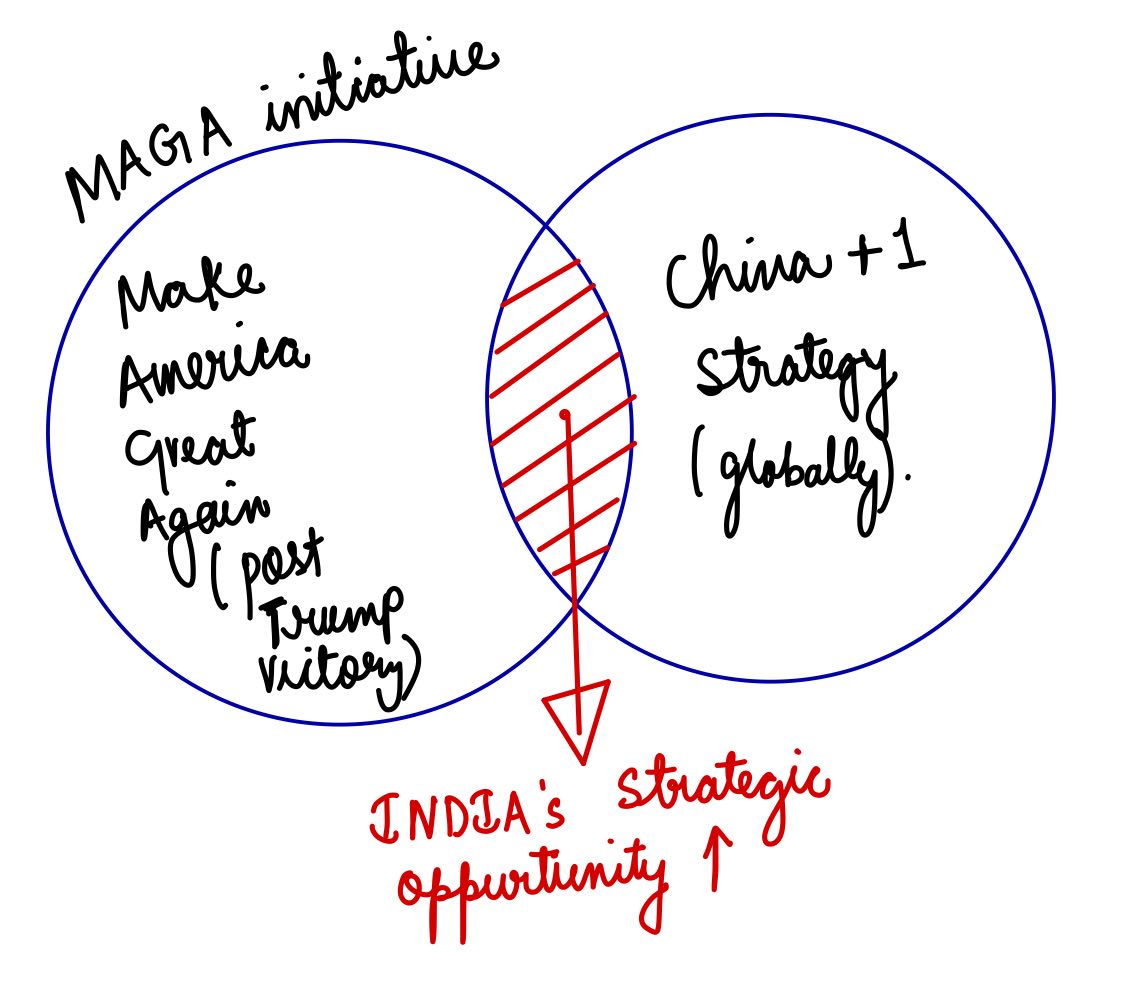 MAGA initiative
Make
America
Great
Again
(post
Trump
victory)
China +1
Strategy
(globally).
INDIA's Strategic
Oppurtunity ↑